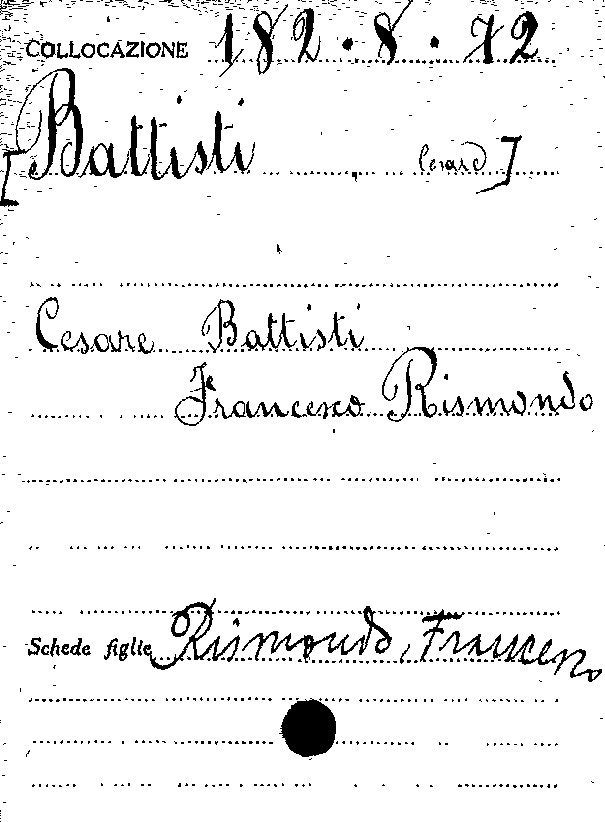 COLLOCAZIONE 182.8.72
[Battisti, Cesare]
Cesare Battisti
Francesco Rismondo
Schede figlie Rismondo, Francesco